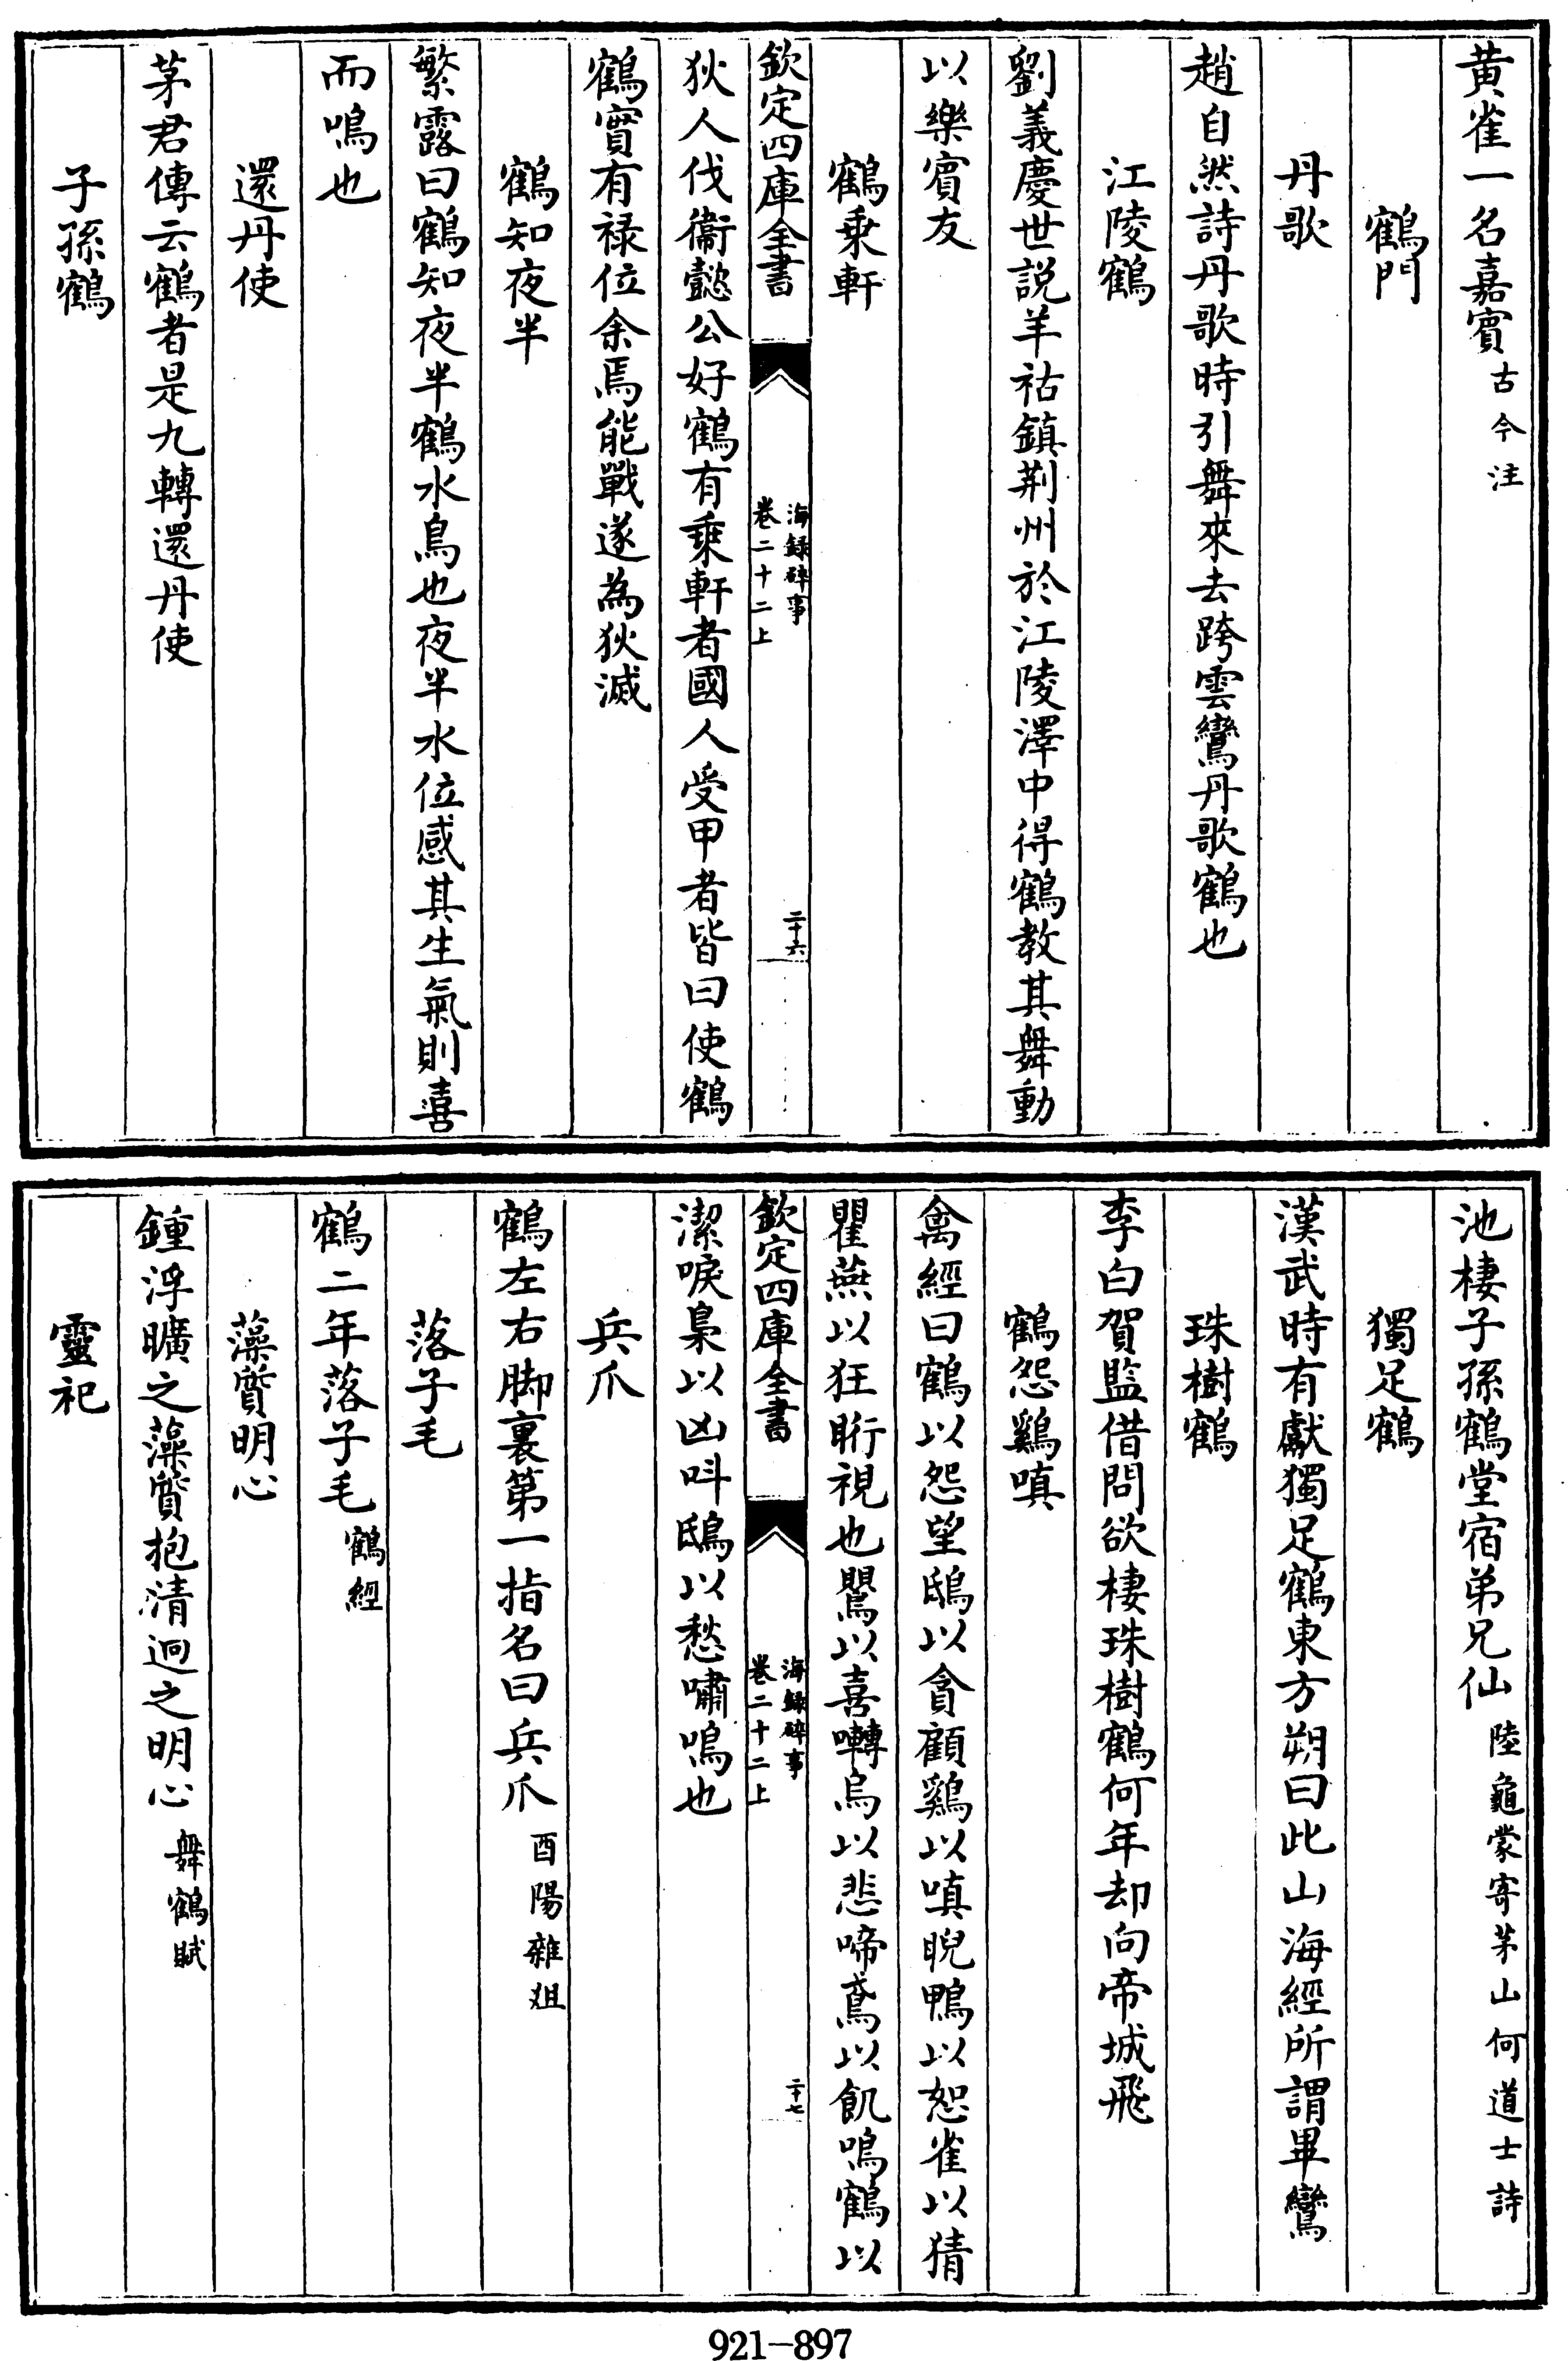 黄雀一名嘉賓古今注
鶴門
丹歌
趙自然詩丹歌時引舞來去跨雲鸞丹歌鶴也
江陵鶴
劉義慶世説羊祜鎮荆州於江陵澤中得鶴教其舞動
以樂賓友
鶴乗軒
欽定四庫全書
海録碎事
卷二十二上
二十六
狄人伐衞懿公好鶴有乗軒者國人受甲者皆曰使鶴
鶴實有禄位余焉能戰遂為狄滅
鶴知夜半
繁露曰鶴知夜半鶴水鳥也夜半水位感其生氣則喜
而鳴也
還丹使
茅君傳云鶴者是九轉還丹使
子孫鶴
池棲子孫鶴堂宿弟兄仙陸龜蒙寄茅山何道士詩
獨足鶴
漢武時有獻獨足鶴東方朔曰此山海經所謂畢鸞
珠樹鶴
李白賀監借問欲棲珠樹鶴何年却向帝城飛
鶴怨鷄嗔
禽經曰鶴以怨望鴟以貪顧鷄以嗔睨鴨以恕雀以猜
瞿燕以狂眄視也鸎以喜囀烏以悲啼鳶以飢鳴鶴以
欽定四庫全書
海録碎事
卷二十二上
二十七
潔唳梟以凶呌鴟以愁嘯鳴也
兵爪
鶴左右脚裏第一指名曰兵爪酉陽雜俎
落子毛
鶴二年落子毛鶴經
藻質明心
鍾浮曠之藻質抱清迥之明心舞鶴賦
靈祀
921-897